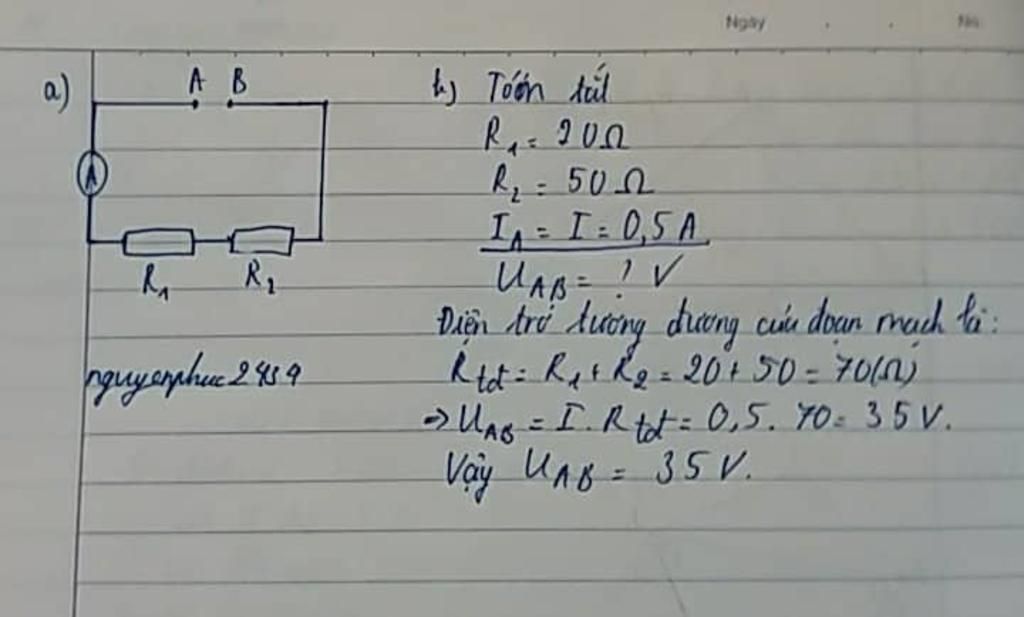 Ngày . . No.
a)
A B
A
R₁ R₂
nguyenphuc2459
b) Tóm tắt
R₁ = 20Ω
R₂ = 50Ω
I_A = I = 0,5A
U_AB = ? V
Điện trở tương đương của đoạn mạch là:
R_tđ = R₁ + R₂ = 20 + 50 = 70(Ω)
=> U_AB = I. R_tđ = 0,5. 70 = 35V.
Vậy U_AB = 35V.